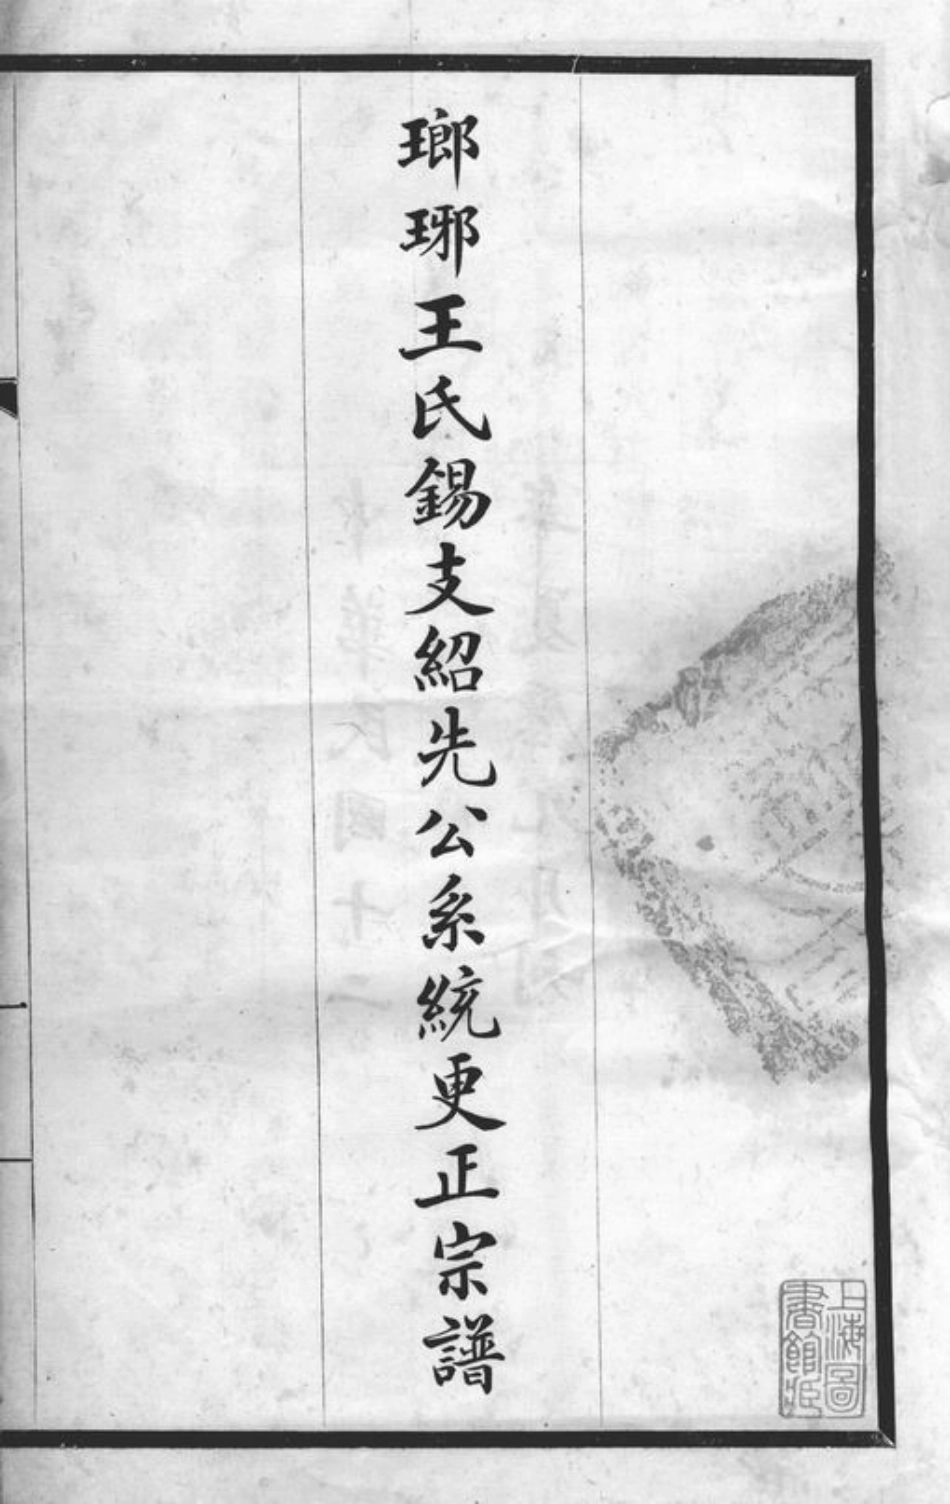 瑯琊王氏錫支紹先公系統更正宗譜
上海圖
書館藏